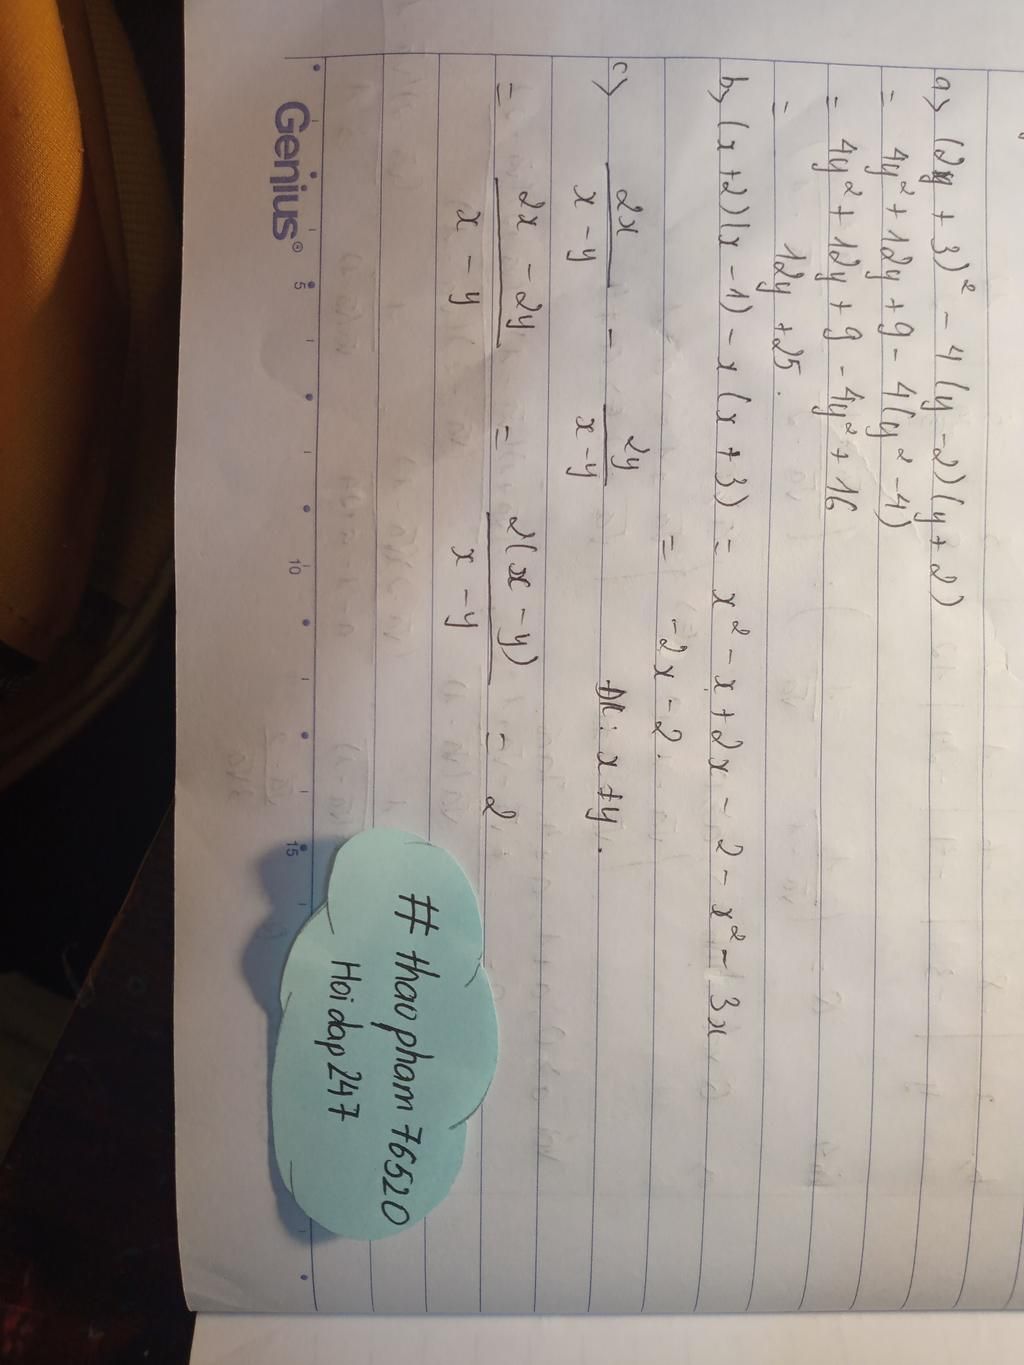 a) (2y + 3)² - 4(y - 2)(y + 2)
= 4y² + 12y + 9 - 4(y² - 4)
= 4y² + 12y + 9 - 4y² + 16
= 12y + 25.
b) (x + 2)(x - 1) - x(x + 3) = x² - x + 2x - 2 - x² - 3x
= -2x - 2.
c) 2x / x - y - 2y / x - y ĐK: x ≠ y.
= 2x - 2y / x - y = 2(x - y) / x - y = 2.
# thaopham76520
Hoidap247
Genius®
5 10 15